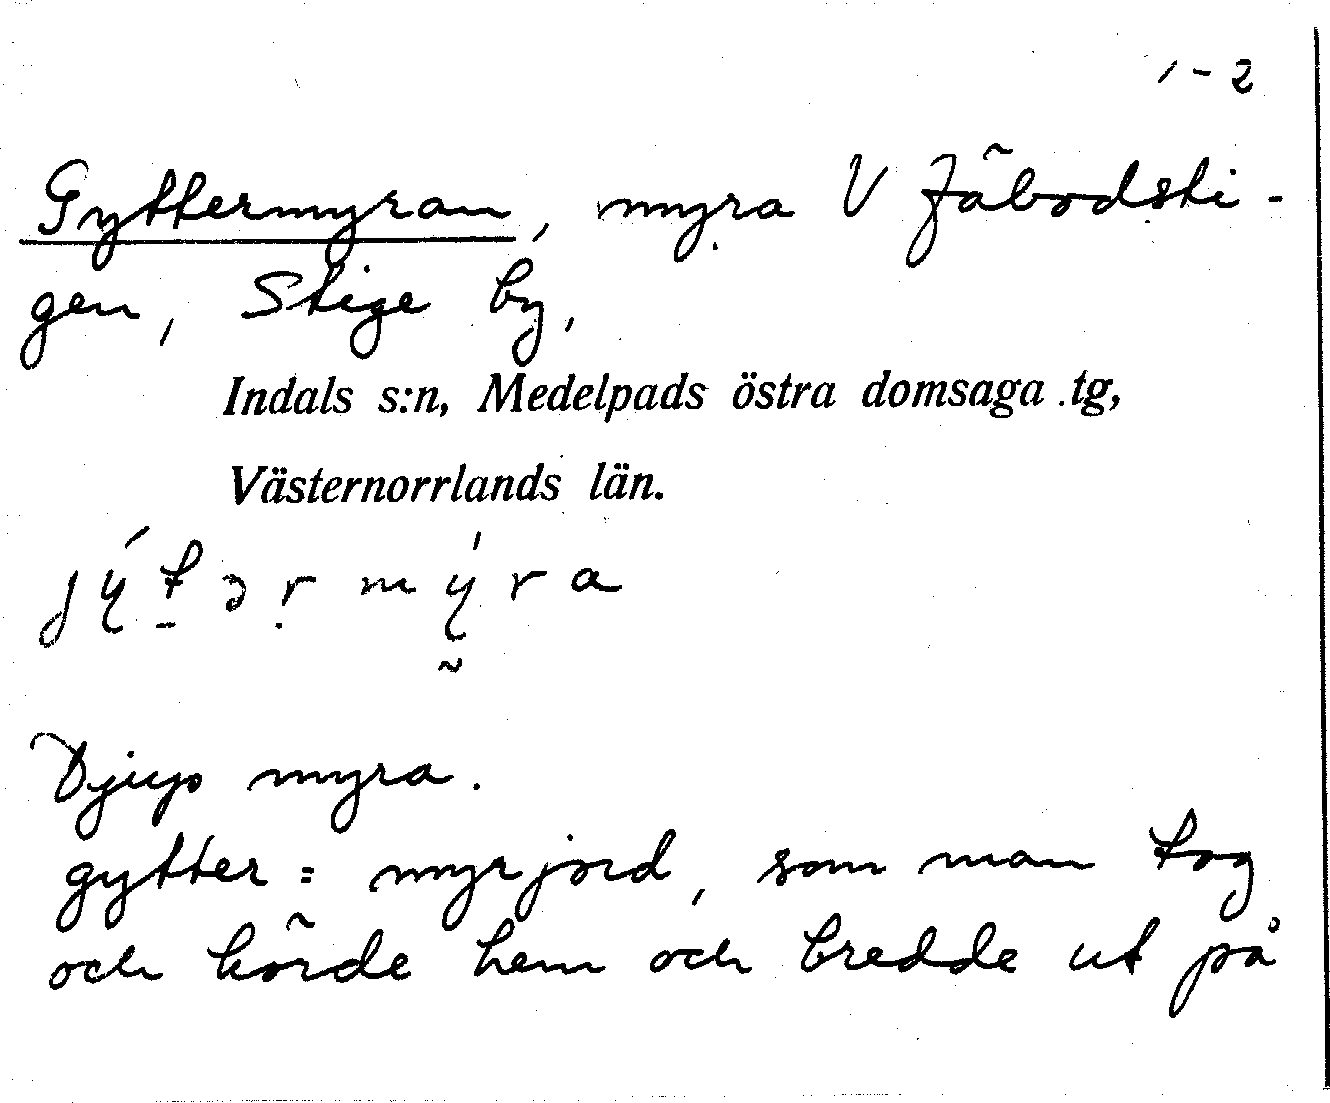 1-2
Gyttermyran, myra V Fäbodsti-
gen, Stige by,
Indals s:n, Medelpads östra domsaga tg,
Västernorrlands län.
Djup myra.
gytter = myrjord, som man tog
och körde hem och bredde ut på